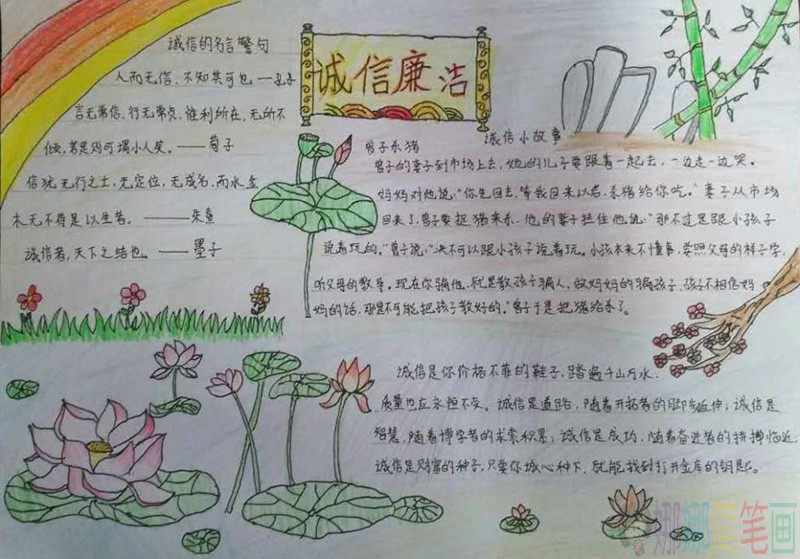 诚信的名言警句
人而无信,不知其可也 —孔子
言无常信,行无常贞,惟利所在,无所不
倾,若是则可谓小人矣。——荀子
信犹五行之土,无定位,无成名,而水金
木无不待是以生者。——朱熹
诚信者,天下之结也。——墨子
诚信廉洁
诚信小故事
曾子杀猪
曾子的妻子到市场上去,她的儿子要跟着一起去,一边走一边哭。
妈妈对他说:“你先回去,等我回来以后,杀猪给你吃。”妻子从市场
回来了,曾子要捉猪来杀,他的妻子拦住他说:“那不过是跟小孩子
说着玩的。”曾子说:“决不可以跟小孩子说着玩。小孩本来不懂事,要照父母的样子学,
听父母的教导。现在你骗他,就是教孩子骗人,做妈妈的骗孩子,孩子不相信妈
妈的话,那是不可能把孩子教好的。”曾子于是把猪给杀了。
诚信是你价格不菲的鞋子,踏遍千山万水,
质量也应永恒不变。诚信是道路,随着开拓者的脚步延伸;诚信是
智慧,随着博学者的求索积累;诚信是成功,随着奋进者的拼搏临近,
诚信是财富的种子,只要你诚心种下,就能找到打开金库的钥匙。
娜娜 笔画